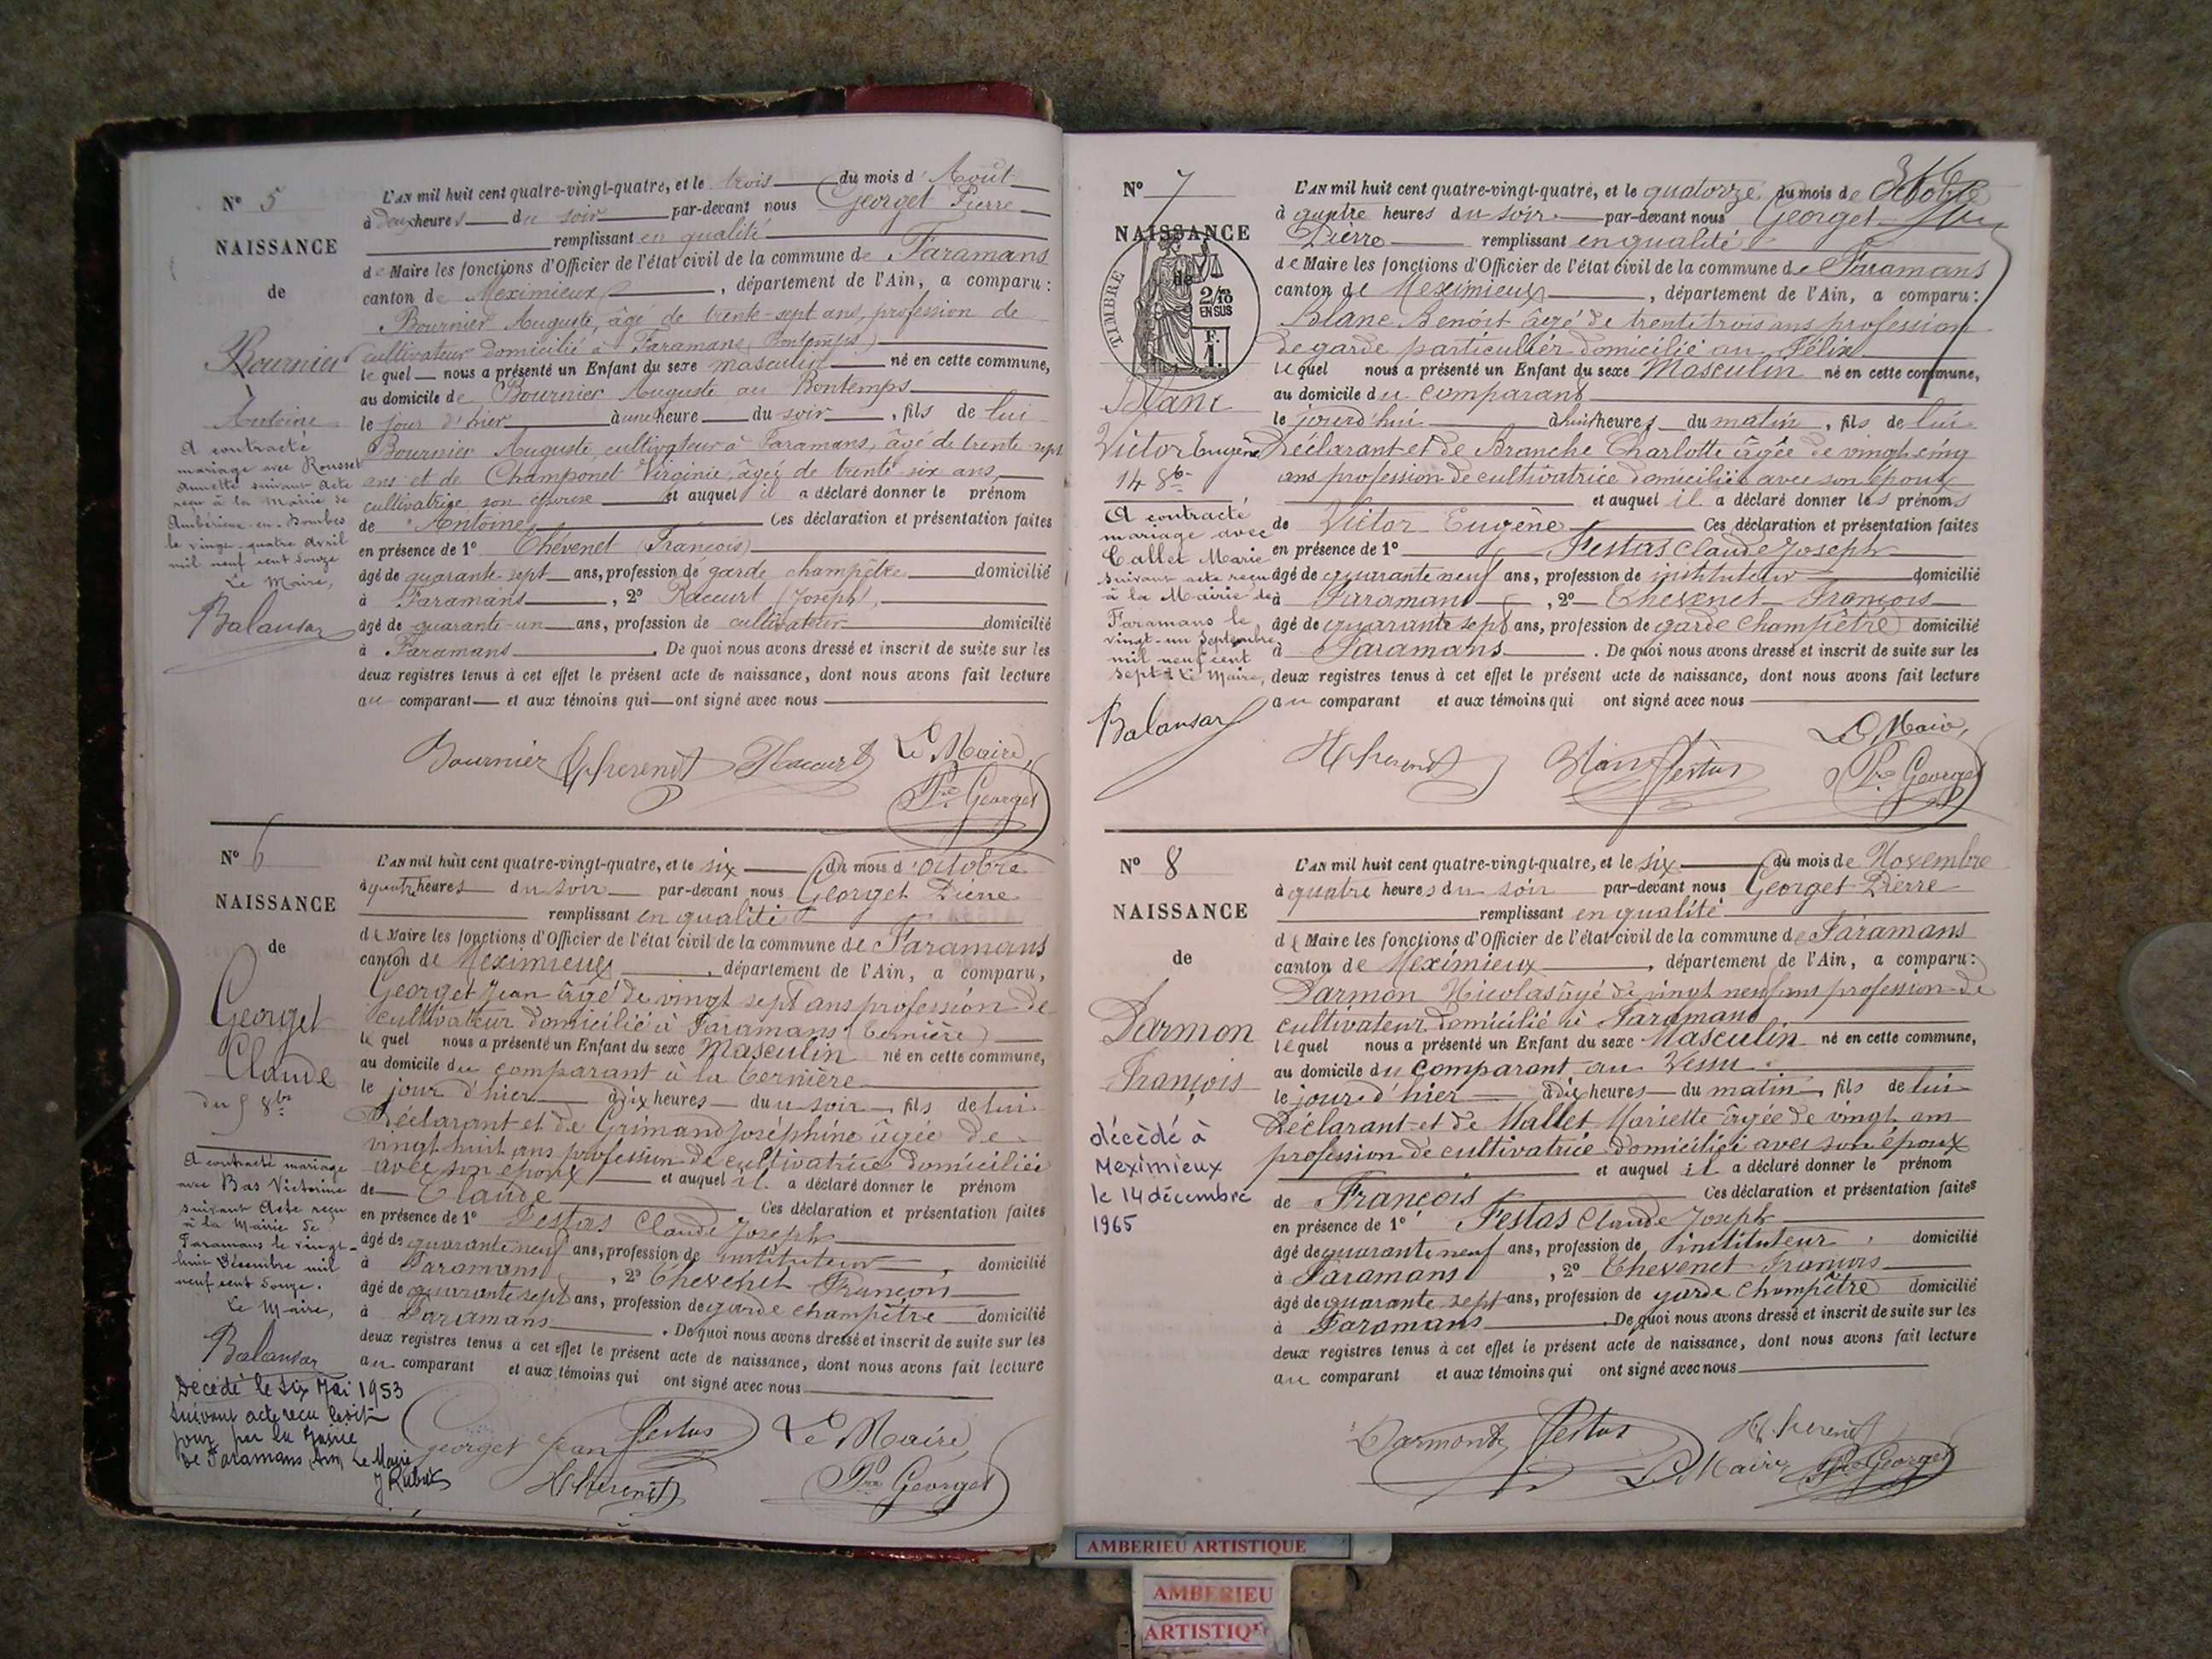 N° 5
NAISSANCE
de
Bournier
Antoine
A contracté
mariage avec Rousset
Annette suivant acte
reçu à la Mairie de
Ambérieux-en-Dombes
le vingt-quatre avril
mil neuf cent douze
Le Maire,
Balansar
L'AN mil huit cent quatre-vingt-quatre, et le trois du mois d'Août
à deux heures du soir par-devant nous Georget Pierre
remplissant en qualité
de Maire les fonctions d'Officier de l'état civil de la commune de Faramans
canton de Meximieux, département de l'Ain, a comparu:
Bournier Auguste, âgé de trente-sept ans, profession de
cultivateur domicilié à Faramans (Bontemps)
lequel nous a présenté un Enfant du sexe masculin né en cette commune,
au domicile de Bournier Auguste au Bontemps
le jour d'hier à une heure du soir, fils de lui
Bournier Auguste, cultivateur à Faramans, âgé de trente sept
ans et de Champonet Virginie, âgée de trente-six ans,
cultivatrice son épouse et auquel il a déclaré donner le prénom
de Antoine Ces déclaration et présentation faites
en présence de 1° Chévenet (François)
âgé de quarante sept ans, profession de garde champêtre domicilié
à Faramans, 2° Raccurt (Joseph),
âgé de quarante-un ans, profession de cultivateur domicilié
à Faramans. De quoi nous avons dressé et inscrit de suite sur les
deux registres tenus à cet effet le présent acte de naissance, dont nous avons fait lecture
au comparant et aux témoins qui ont signé avec nous
Bournier Chevenet Raccurt Le Maire,
Pre Georget
N° 6
NAISSANCE
de
Georget
Claude
du 5 8bre
A contracté mariage
avec Bas Victorine
suivant Acte reçu
à la Mairie de
Faramans le vingt-
huit Décembre mil
neuf cent douze.
Le Maire,
Balansar
Décédé le six Mai 1953
suivant acte reçu ledit
jour par la Mairie
de Faramans (Ain) Le Maire
L'AN mil huit cent quatre-vingt-quatre, et le six du mois d'octobre
à quatre heures du soir par-devant nous Georget Pierre
remplissant en qualité
de Maire les fonctions d'Officier de l'état civil de la commune de Faramans
canton de Meximieux, département de l'Ain, a comparu,
Georget Jean âgé de vingt sept ans profession de
cultivateur domicilié à Faramans (Bernière)
lequel nous a présenté un Enfant du sexe Masculin né en cette commune,
au domicile du comparant à la Bernière
le jour d'hier à dix heures du soir, fils de lui
Déclarant et de Grimand Joséphine âgée de
vingt huit ans profession de cultivatrice domiciliée
avec son époux et auquel il a déclaré donner le prénom
de Claude Ces déclaration et présentation faites
en présence de 1° Festas Claude Joseph
âgé de quarante neuf ans, profession de instituteur, domicilié
à Faramans, 2° Chevenet François
âgé de quarante sept ans, profession de garde champêtre domicilié
à Faramans. De quoi nous avons dressé et inscrit de suite sur les
deux registres tenus à cet effet le présent acte de naissance, dont nous avons fait lecture
au comparant et aux témoins qui ont signé avec nous
georget Jean Festas Le Maire,
Chevenet Pre Georget
N° 7
NAISSANCE
de
TIMBRE
2/10
EN SUS
F.
1.
Blanc
Victor Eugène
14 8bre
A contracté
mariage avec
Callet Marie
suivant acte reçu
à la Mairie de
Faramans le
vingt-un Septembre
mil neuf cent
sept. Le Maire,
Balansar
L'AN mil huit cent quatre-vingt-quatre, et le quatorze du mois de Octobre
à quatre heures du soir par-devant nous Georget
Pierre remplissant en qualité
de Maire les fonctions d'Officier de l'état civil de la commune de Faramans
canton de Meximieux, département de l'Ain, a comparu:
Blanc Benoît âgé de trente trois ans profession
de garde particulier domicilié au Félix
lequel nous a présenté un Enfant du sexe Masculin né en cette commune,
au domicile du comparant
le jourd'hui à huit heures du matin, fils de lui
Déclarant et de Branche Charlotte âgée de vingt cinq
ans profession de cultivatrice domiciliée avec son époux
et auquel il a déclaré donner les prénoms
de Victor Eugène Ces déclaration et présentation faites
en présence de 1° Festas Claude Joseph
âgé de quarante neuf ans, profession de instituteur domicilié
à Faramans, 2° Chevenet François
âgé de quarante sept ans, profession de garde Champêtre domicilié
à Faramans. De quoi nous avons dressé et inscrit de suite sur les
deux registres tenus à cet effet le présent acte de naissance, dont nous avons fait lecture
au comparant et aux témoins qui ont signé avec nous
Chevenet Blanc Festas Le Maire,
Pre Georget
N° 8
NAISSANCE
de
Darmon
François
décédé à
Meximieux
le 14 décembre
1965
L'AN mil huit cent quatre-vingt-quatre, et le six du mois de Novembre
à quatre heures du soir par-devant nous Georget Pierre
remplissant en qualité
de Maire les fonctions d'Officier de l'état civil de la commune de Faramans
canton de Meximieux, département de l'Ain, a comparu:
Darmon Nicolas âgé de vingt neuf ans profession de
cultivateur domicilié à Faramans
lequel nous a présenté un Enfant du sexe Masculin né en cette commune,
au domicile du comparant au
le jour d'hier à dix heures du matin, fils de lui
Déclarant et de Mallet Mariette âgée de vingt ans
profession de cultivatrice domiciliée avec son époux
et auquel il a déclaré donner le prénom
de François Ces déclaration et présentation faites
en présence de 1° Festas Claude Joseph
âgé de quarante neuf ans, profession de instituteur, domicilié
à Faramans, 2° Chevenet François
âgé de quarante sept ans, profession de garde Champêtre domicilié
à Faramans. De quoi nous avons dressé et inscrit de suite sur les
deux registres tenus à cet effet le présent acte de naissance, dont nous avons fait lecture
au comparant et aux témoins qui ont signé avec nous
Darmond Festas Chevenet
Le Maire Pre Georget
AMBERIEU ARTISTIQUE
AMBERIEU
ARTISTIQUE